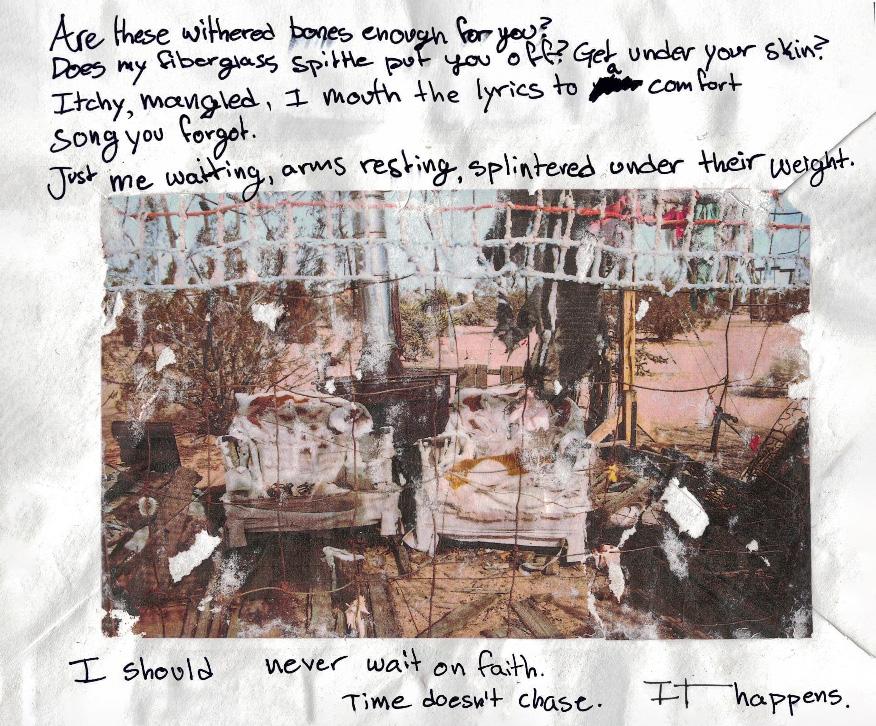 Are these withered bones enough for you?
Does my fiberglass spittle put you off? Get under your skin?
Itchy, mangled, I mouth the lyrics to a comfort
song you forgot.
Just me waiting, arms resting, splintered under their weight.
I should never wait on faith.
Time doesn't chase. IT happens.